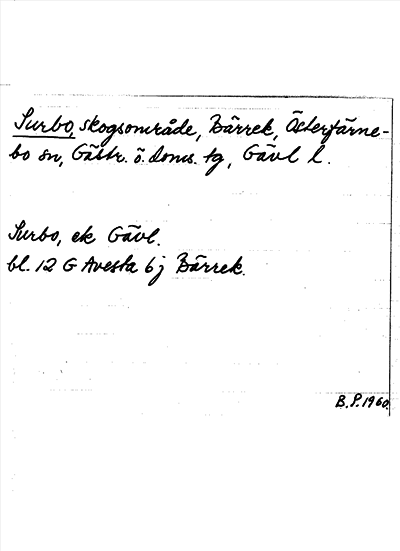 Surbo, skogsområde, Bärrek, Österfärne-
bo sn, Gästr. ö. doms. tg, Gävl l.
Surbo, ek Gävl.
bl. 12 G Avesta 6j Bärrek.
B.P. 1960.